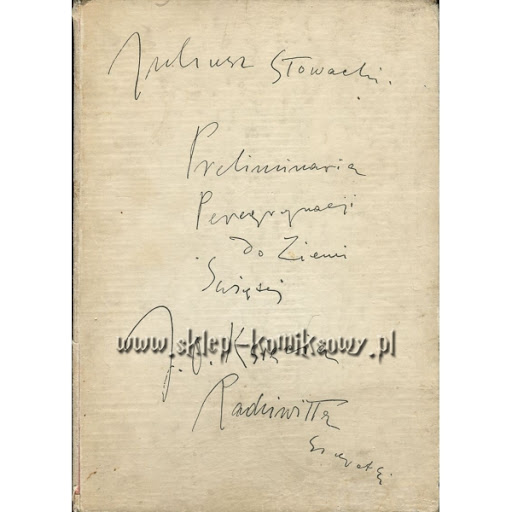 Juliusz Słowacki.
Preliminaria
Peregrynacji
do Ziemi
Świętej
J.O.
www.sklep-komiksowy.pl
Radziwiłła
Sierotki